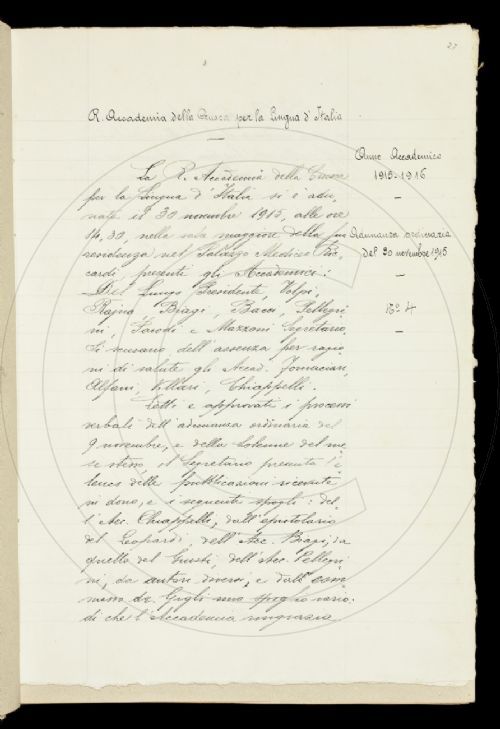 27
R. Accademia della Crusca per la Lingua d'Italia
Anno Accademico
1915-1916
Adunanza ordinaria
del 30 novembre 1915
N.º 4
La R. Accademia della Crusca
per la Lingua d'Italia si è adu
nata il 30 novembre 1915, alle ore
14,30, nella sala maggiore della sua
residenza nel Palazzo Mediceo Ric
cardi, presenti gli Accademici:
Del Lungo Presidente, Volpi,
Rajna, Biagi, Bacci, Pellegri
ni, Parodi e Mazzoni Segretario.
Si scusano dell'assenza per ragio
ni di salute gli Accad. Fornaciari,
Alfani, Villari, Chiappelli.
Letti e approvati i processi
verbali dell'adunanza ordinaria del
9 novembre, e della Solenne del me
se stesso, il Segretario presenta l'e
lenco delle pubblicazioni ricevute
in dono, e i seguenti spogli: del
l'Acc. Chiappelli, dall'epistolario
del Leopardi, dell'Acc. Biagi, da
quello del Giusti, dell'Acc. Pellegri
ni, da autori diversi, e dall'
dr. Gigli uno spoglio vario.
di che l'Accademia ringrazia